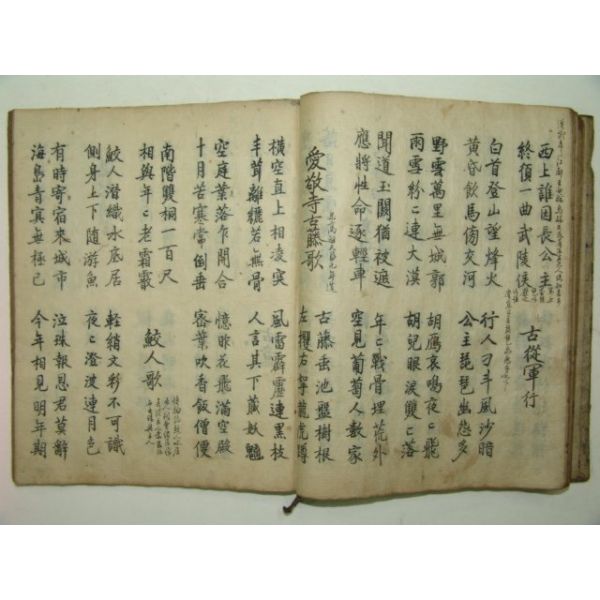 西上誰因長公主
終須一曲武陵侯
古從軍行
白首登山望烽火
黃昏飲馬傍交河
行人刁斗風沙暗
公主琵琶幽怨多
野雲萬里無城郭
雨雪紛〻連大漠
胡鴈哀鳴夜〻飛
胡兒眼淚雙〻落
聞道玉關猶被遮
應將性命逐輕車
年〻戰骨埋荒外
空見葡萄人數家
愛敬寺古藤歌
古藤垂池盤樹根
左攫右拏龍虎蹲
橫空直上相凌突
丰茸離纚若無骨
風雷霹靂連黑枝
人言其下藏妖魑
空庭葉落乍開合
十月苦寒常倒垂
憶昨花飛滿空殿
密葉吹香飯僧便
南階雙桐一百尺
相與年〻老霜霰
鮫人歌
鮫人潛織水底居
側身上下隨游魚
輕綃文彩不可識
夜〻澄波連月色
有時寄宿來城市
海島青冥無極已
泣珠報恩君莫辭
今年相見明年期